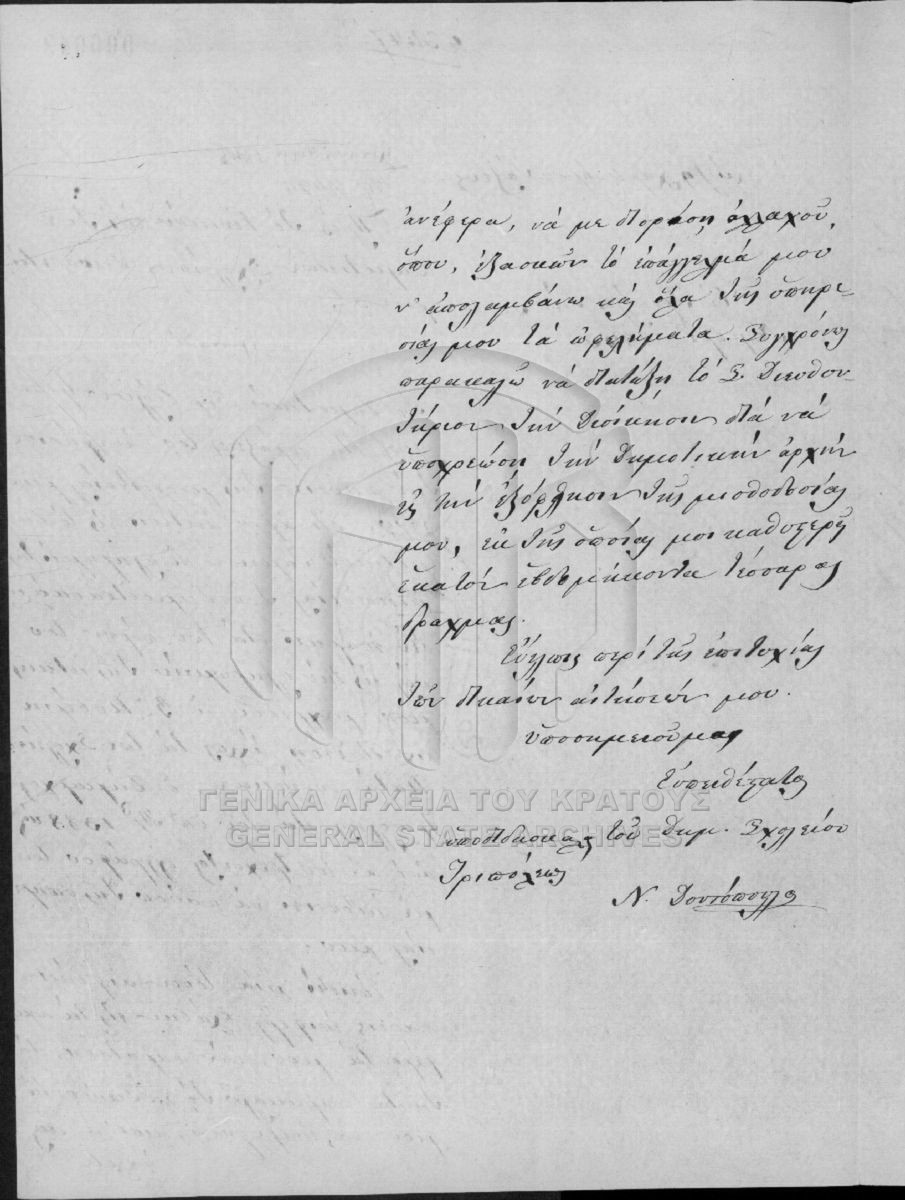 ἀνέφερα, νὰ με διορίσῃ ἀλλαχοῦ,
ὅπου, ἐξασκῶν τὸ ἐπάγγελμά μου
ν' ἀπολαμβάνω καὶ ὅλα τῆς ὑπηρε-
σίας μου τὰ ὠφελήματα. Συγχρόνως
παρακαλῶ νὰ διατάξῃ τὸ Σ. Διευθυν-
τήριον τὴν Διοίκησιν διὰ νὰ
ὑποχρεώσῃ τὴν Δημοτικὴν ἀρχὴν
εἰς τὴν ἐξόφλησιν τῆς μισθοδοσίας
μου, ἐκ τῆς ὁποίας μοι καθυστερεῖ
ἑκατὸν ἑβδομήκοντα τέσσαρας
δραχμάς.
Εὔελπις περὶ τῆς ἐπιτυχίας
τῶν δικαίων αἰτήσεών μου.
ὑποσημειοῦμαι
Εὐπειθέστατος
ὑποδιδάσκαλος τοῦ Δημ. Σχολείου
Τριπόλεως
Ν.
ΓΕΝΙΚΑ ΑΡΧΕΙΑ ΤΟΥ ΚΡΑΤΟΥΣ
GENERAL STATE ARCHIVES